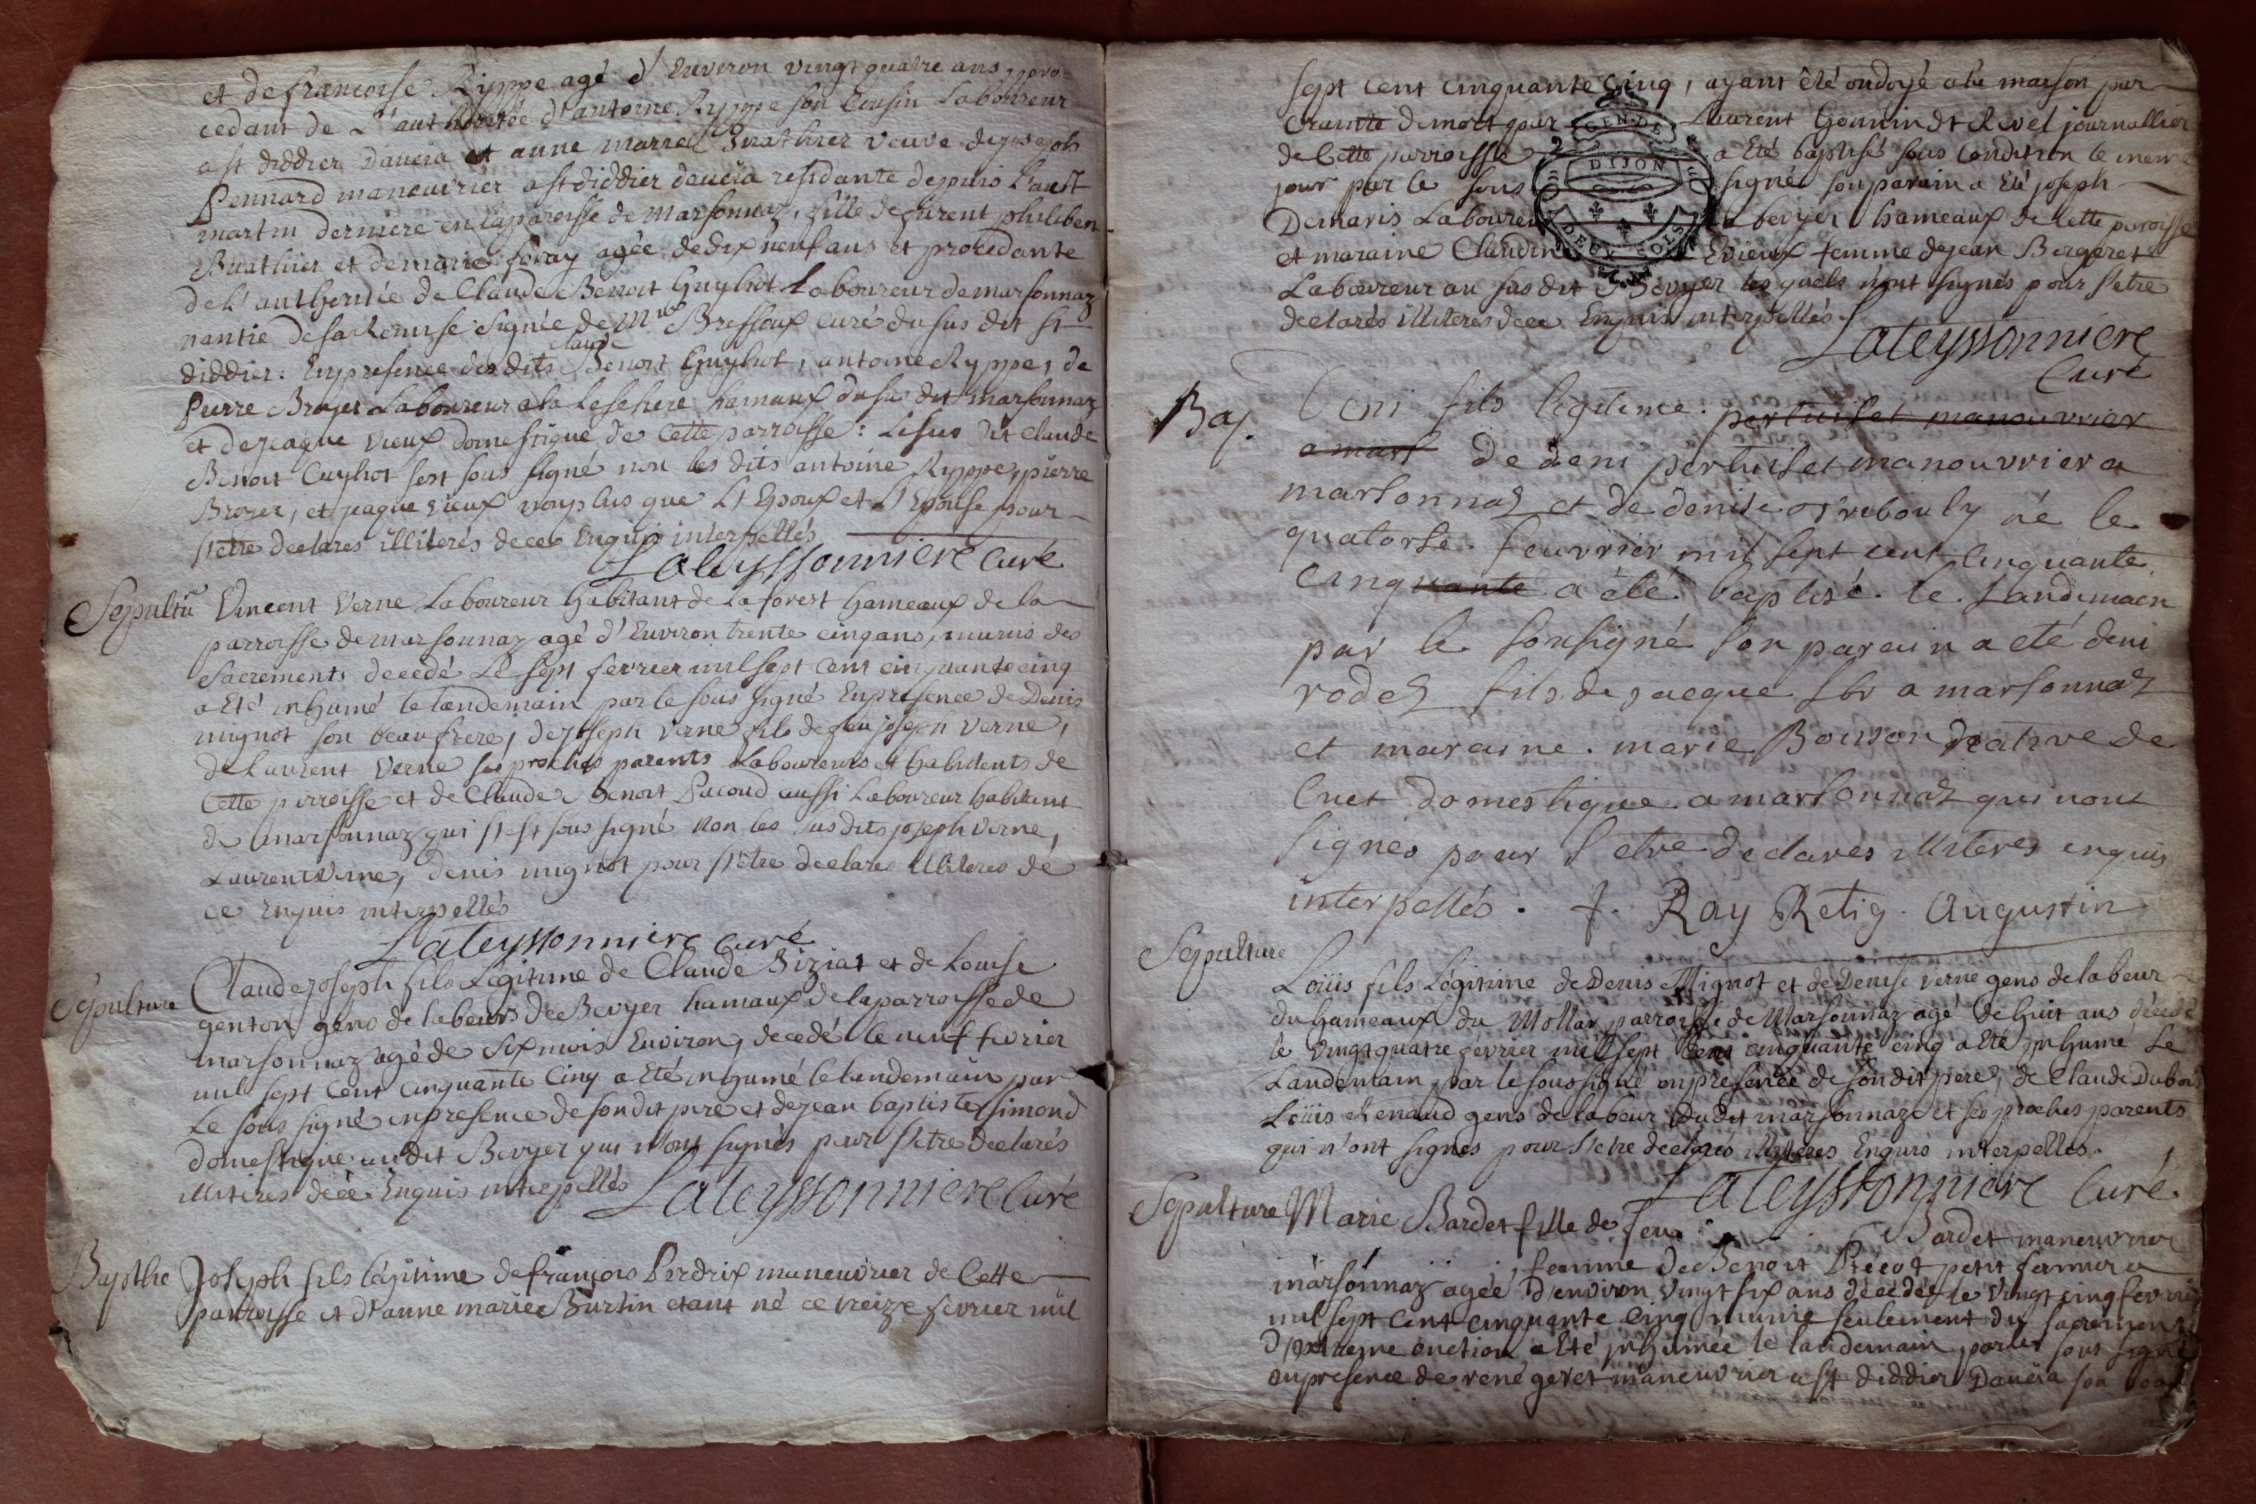 et de francoise Ryppe agé d'Environ vingt quatre ans, pro=
cedant de L'authoritée d'antoine Ryppe son Cousin Laboureur
a st diddier daucia et anne marie Buathier veuve de joseph
Pennard maneuvrier a st diddier daucia residante depuis La st
martin derniere en la paroisse de marsonnaz, fille de furent philiben
Buathier et de marie foray agée de dix neuf ans et procedante
de L'authoritée de Claude Benoit Guyhot Laboureur de marsonnaz
nantie de sa Remise signée de Mre Bressoux curé du sus dit st
diddier. En presence des dits claude Benoit Guyhot, antoine Ryppe, de
Pierre Broyer Laboureur a la Leschere hameaux du sus dit marsonnaz
et de jaque vieux domestique de Cette parroisse: Le sus dit Claude
Benoit Guyhot sest sous signé non les dits antoine Ryppe, pierre
Broyer, et jaque vieux non plus que L'Epoux et L'Epouse pour
s'etre declares illiterés de ce Enquis interpellés
Lateyssonniere Curé
Sepultu Vincent Verne Laboureur habitant de La forest hameaux de la
parroisse de marsonnaz agé d'Environ trente cinq ans, munis des
Sacrements decedé Le sept fevrier mil sept cent cinquante cinq
a Eté inhumé le landemain par le sous signé En presence de Denis
mignot son beau frere, de joseph verne fils de feu joseph verne,
de Laurent Verne ses proches parents Laboureurs et habitents de
Cette parroisse et de Claude Benoit Pacoud aussi Laboureur habitant
de marsonnaz qui s'est sous signé non les susdits joseph verne,
Laurent Verne, denis mignot pour s'etre declares illiteres de
ce Enquis interpellés
Lateyssonniere curé
Sepulture Claude joseph fils Légitime de Claude Biziat et de Louise
genton gens de labeurs de Bevyer hameaux de la parroisse de
marsonnaz agé de six mois Environ, decedé le neuf fevrier
mil sept cent cinquante Cinq a Eté inhumé le landemain par
Le sous signé en presence de son dit pere et de jean baptiste simond
domestique au dit Bevyer qui n'ont signés pour s'etre declarés
illiteres de ce Enquis interpellés Lateyssonniere Curé
Bapthe Joseph fils légitime de françois Perdrix maneuvrier de Cette
parroisse et d'anne marie Burtin etant né ce treize fevrier mil
sept cent cinquante cinq, ayant êté ondoyé a la maison par
Crainte de mort par Laurent Gonnin dt Revel journallier
de Cette parroisse a Eté baptisé sous condition le meme
jour par le sous signé son parain a Eté joseph
Demaris Laboureur a bevyer hameaux de Cette parroisse
et maraine Claudine Evieux femme de jean Bergeret
Laboureur au susdit Bevyer les quels n'ont signés pour s'etre
declarés illiteres de ce Enquis interpellés
GEN. DE DIJON
DEUX SOLS
Lateyssonniere
Curé
Bap. Deni fils legitime. pertuiset manouvrier
a mars de deni pertuiset manouvrier a
marsonnaz et de denise trebouly né le
quatorse feuvrier mil sept cent cinquante
cinquante a été baptisé. le Landemain
par le sousigné son parain a eté deni
rodet fils de jacque lbr a marsonnaz
et maraine. marie Bouson natiive de
Cuet domestique a marsonnaz qui nont
signes pour s'etre declarés illiterés enquis
interpellés. f. Ray Relig. Augustin
Sepulture
Loüis fils Légitime de Denis Mignot et de Denise verne gens de labeur
du hameaux du Mollar parroisse de Marsonnaz agé de huit ans décedé
le vingt quatre fevrier mil sept cent cinquante cinq a Eté inhumé Le
Landemain par le sous signé en presence de son dit pere, de Claude Dubois
Loüis Renaud gens de labeur du dit marsonnaz et ses proches parents
qui n'ont signes pour s'etre declarés illiteres Enquis interpelles.
Lateyssonniere Curé.
Sepulture Marie Bardet fille de feu Bardet maneuvrier
marsonnaz, femme de Benoit Prévot petit fermier a
marsonnaz agée D'environ vingt six ans décédée le vingt cinq fevrier
mil sept cent cinquante cinq munie seulement du sacrement
d'extreme onction a Eté inhumée le landemain par le sous signé
en presence de rené geret maneuvrier a st diddier Daucia son